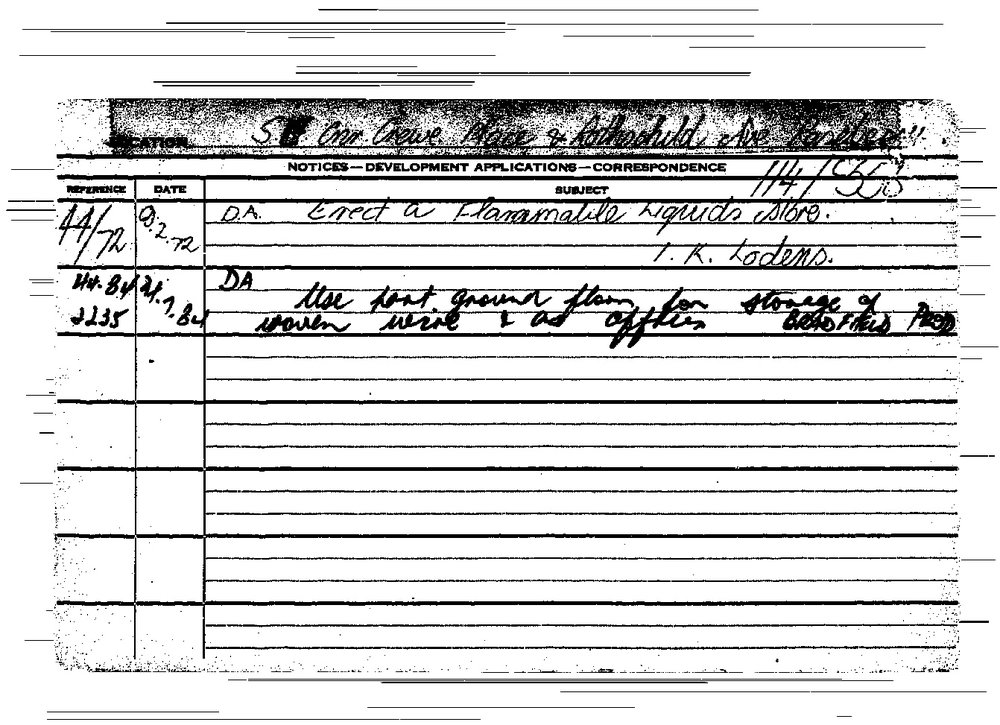 LOCATION S Cnr Crewe Place & Rothschild Ave
NOTICES—DEVELOPMENT APPLICATIONS—CORRESPONDENCE
114/
REFERENCE DATE SUBJECT
44/72 9.2.72 D.A. Erect a Flammable Liquids Store.
I. K. Lodens.
DA
Use part ground floor for storage of
2235 woven wire & as offices BRADFIELD PROD